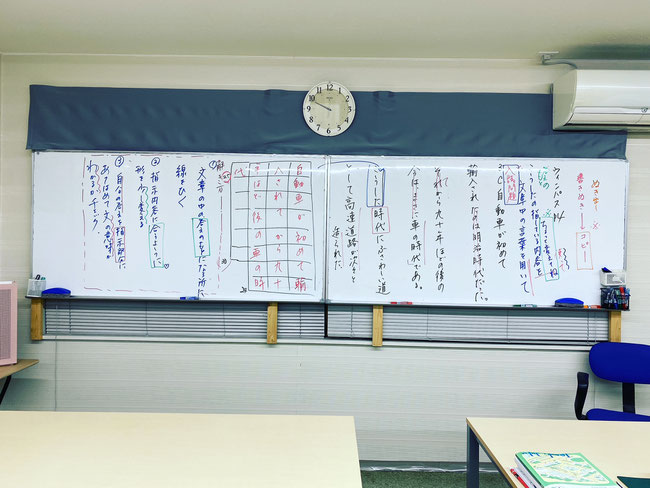 ぬきだし→×
書きぬき→コピー
ウィンパス 14
こうした の指している内容を
文章中の言葉を用いて
例題
自動車が初めて
輸入されたのは明治時代だった。
それから九十年ほど後の
今は、まさに車の時代である。
こうした時代にふさわしい道
として高速道路が次々と
造られた
自動車が初めて輸
入されてから九十
年ほど後の車の時
代
20
解き方
①文章の中の答えのもとになる所に
線をひく
②指示内容に合うように
形をかえる
③自分の答えを指示部分に
あてはめて文の意味が
わかるかチェック。